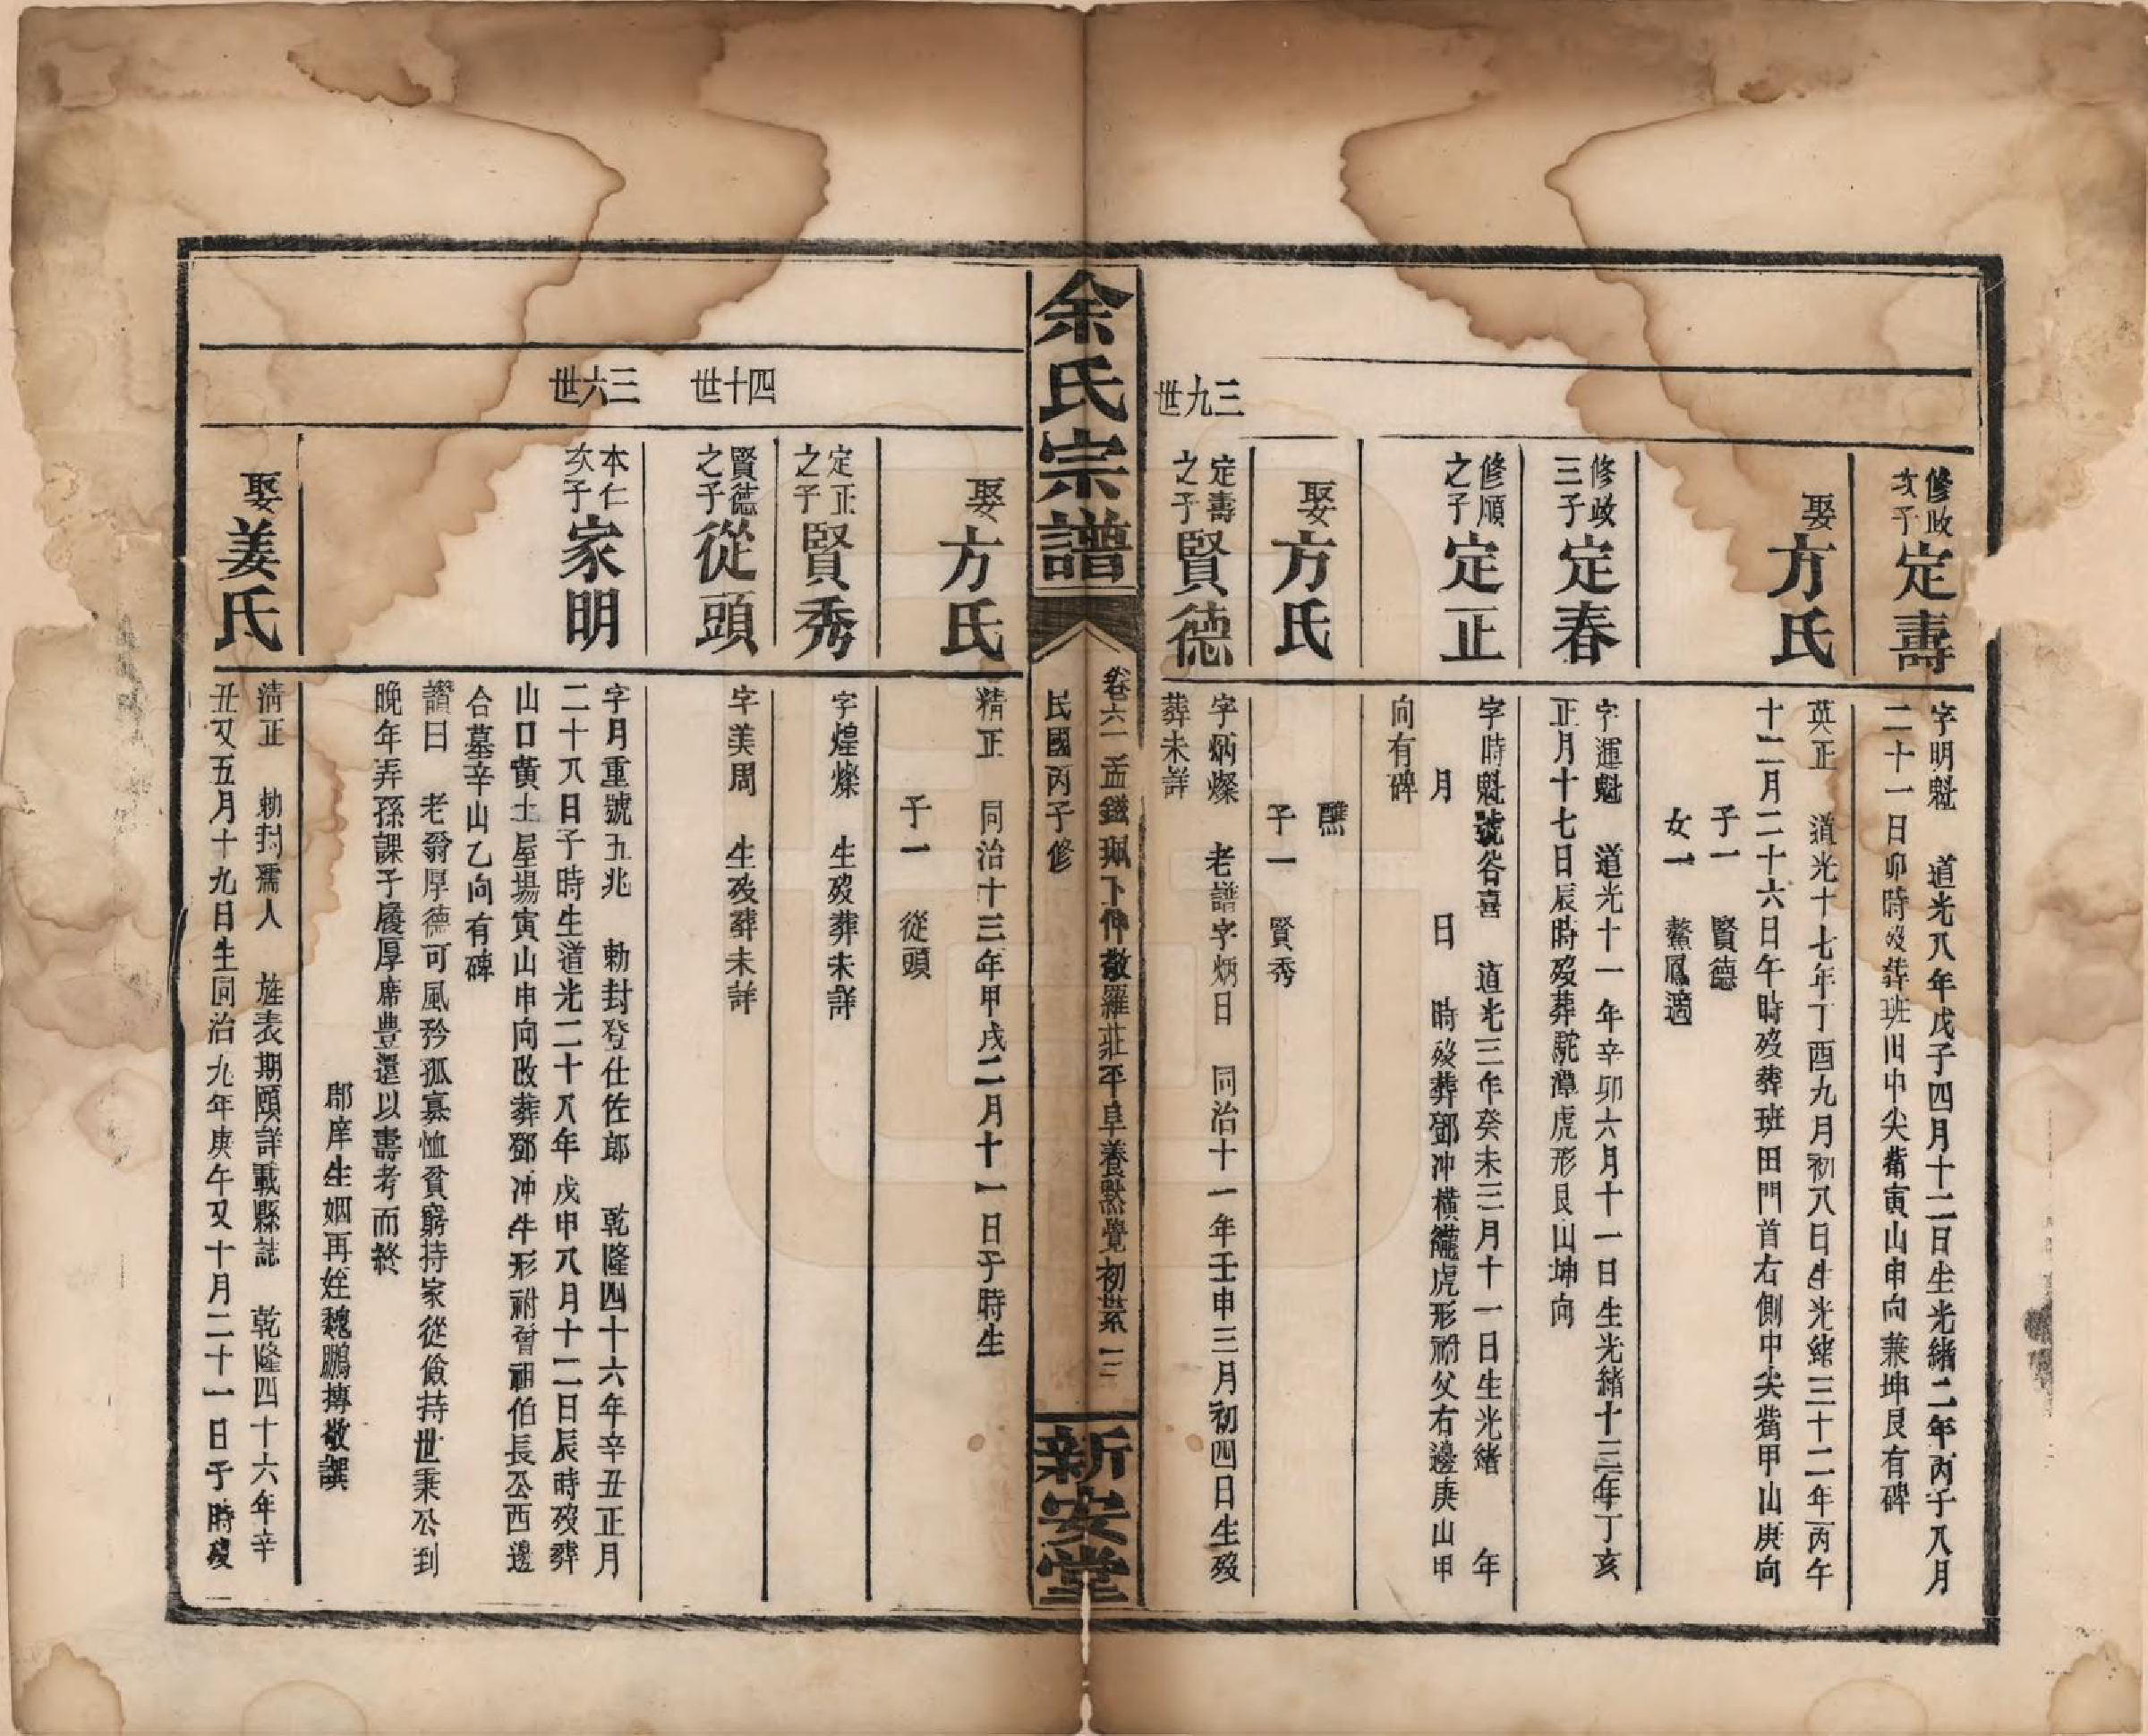 修政
次子
定壽
字明魁 道光八年戊子四月十二日生光緒二年丙子八月
二十一日卯時歿葬班田中尖觜寅山申向兼坤艮有碑
娶
方氏
英正 道光十七年丁酉九月初八日生光緒三十二年丙午
十二月二十六日午時歿葬班田門首右側中尖觜甲山庚向
子一 賢德
女一 鰲鳳適
修政
三子
定春
字運魁 道光十一年辛卯六月十一日生光緒十三年丁亥
正月十七日辰時歿葬駝潭虎形艮山坤向
修順
之子
定正
字時魁號谷喜 道光三年癸未三月十一日生光緒 年
月 日 時歿葬鄧冲橫壠虎形祔父右邊庚山甲
向有碑
娶
方氏
醮
子一 賢秀
三九世
定壽
之子
賢德
字炳燦 老譜字炳日 同治十一年壬申三月初四日生歿
葬未詳
余氏宗譜
卷六一 孟鐵珮下仲敬羅莊平阜養默覺初世系 三
民國丙子修
新安堂
娶
方氏
精正 同治十三年甲戌二月十一日子時生
子一 從頭
定正
之子
賢秀
字煌燦 生歿葬未詳
四十世
賢德
之子
從頭
字美周 生歿葬未詳
三六世
本仁
次子
家明
字月重號五兆 勅封登仕佐郎 乾隆四十六年辛丑正月
二十八日子時生道光二十八年戊申八月十二日辰時歿葬
山口黃土屋場寅山申向改葬鄧冲牛形祔曾祖伯長公西邊
合墓辛山乙向有碑
讚曰 老翁厚德可風矜孤寡恤貧窮持家從儉持世秉公到
晚年弄孫課子履厚席豊還以壽考而終
郡庠生姻再姪魏鵬摶敬譔
娶
姜氏
清正 勅封孺人 旌表期頤詳載縣誌 乾隆四十六年辛
丑又五月十九日生同治九年庚午又十月二十一日子時歿